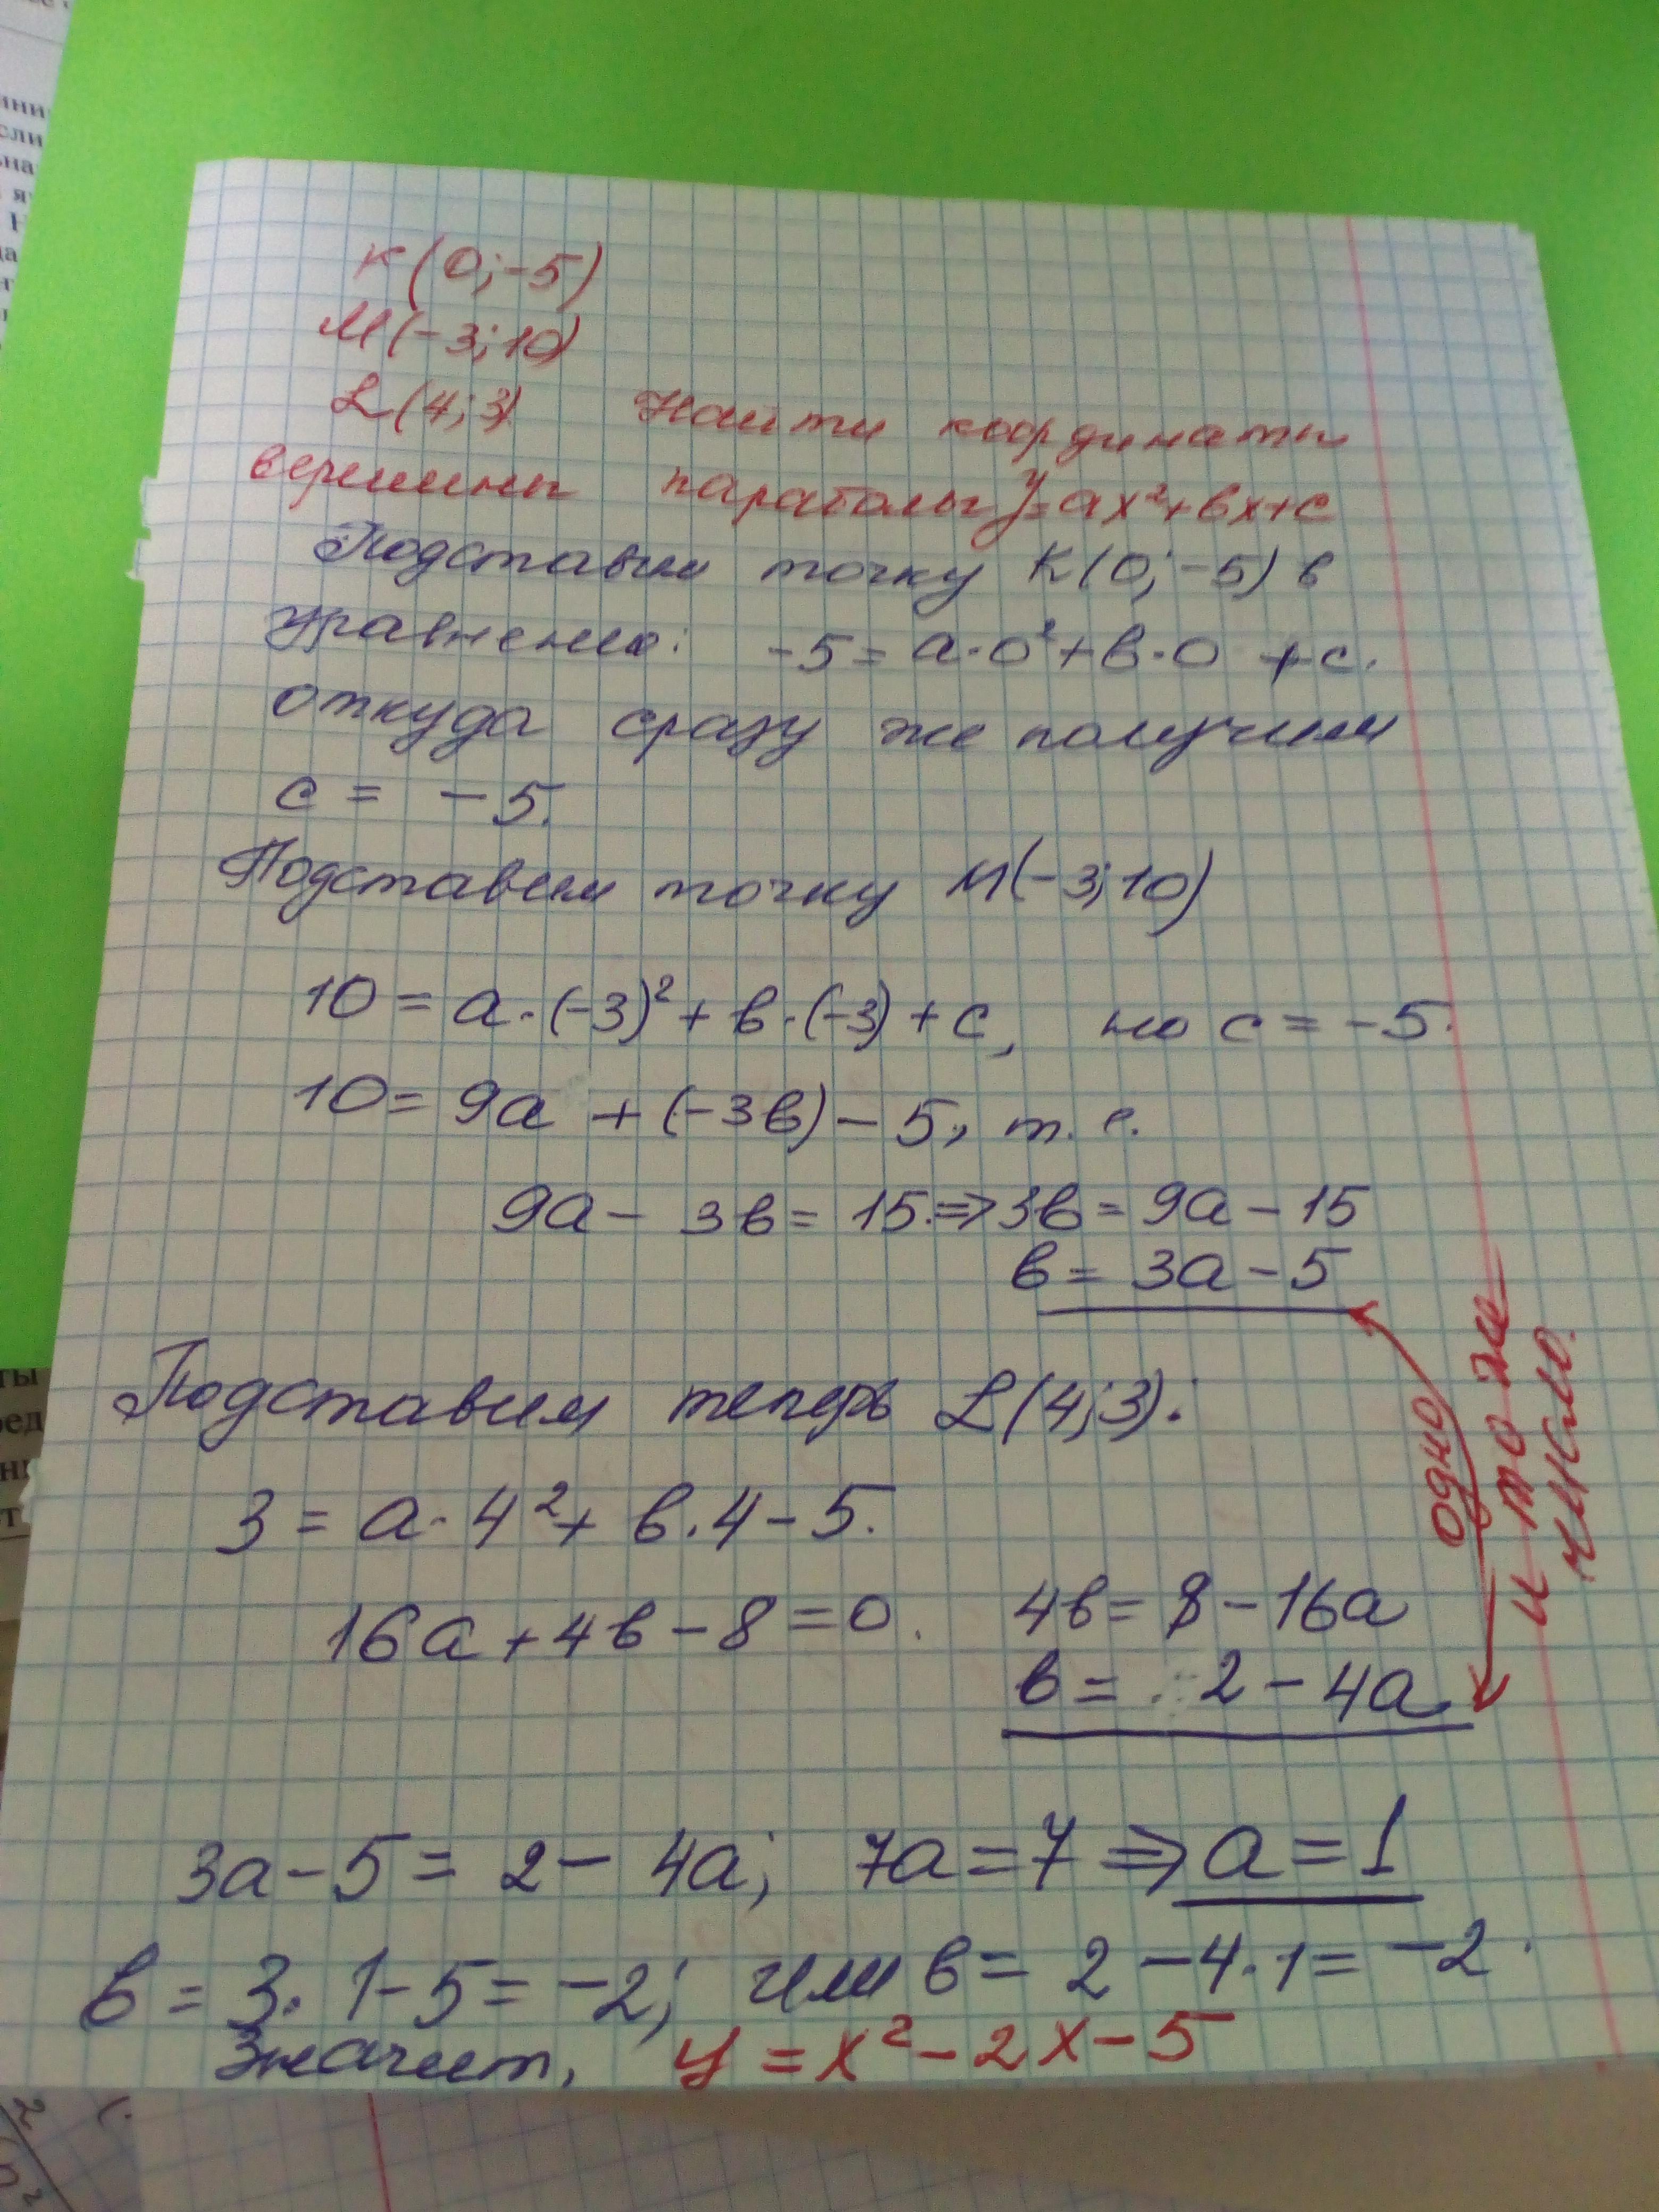 К(0;-5)
М(-3;10)
L(4;3) Найти координаты
вершины параболы y=ax²+bx+c
Подставим точку К(0;-5) в
уравнение: -5=a·0²+b·0 +c.
откуда сразу же получим
c = -5.
Подставим точку М(-3;10)
10=a·(-3)²+b·(-3)+c, но c=-5.
10=9a+(-3b)-5, т.е.
9a-3b=15.⇒3b=9a-15
b=3a-5
Подставим теперь L(4;3):
3=a·4²+b·4-5.
16a+4b-8=0. 4b=8-16a
b=2-4a
одно
и то же
число.
3a-5=2-4a; 7a=7⇒a=1
b=3·1-5=-2; или b=2-4·1=-2.
Значит, y=x²-2x-5